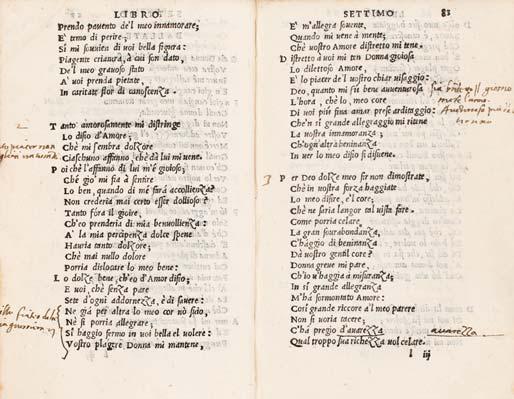 LIBRO
Prendo pavento de'l meo innamorare;
E' temo di perire;
Sì mi souvien di uoi bella figura:
Piagente criatura, à cui son dato,
De'l meo grauoso stato
A' uoi prenda pietate,
In caritate fior di canoscenza.
2
Tanto amorosamente mi distringe
Lo disio d'Amore;
Chè mi sembra dolzore
Ciaschuno affanno, chè dà lui mi uene.
Poi chè l'affanno di lui m'è gioioso;
Chè gio' mi fia à sentire
Lo ben, quando di me sarà accollienza?
Non crederia mai certo esser dollioso?
Tanto fora il gioire,
Ch'eo prenderia di mia benuollienza:
A' la mia percipenza dolce spene
Hauria tanto dolzore;
Chè mai nullo dolore
Poria disloare lo meo bene:
Lo dolze bene, ch'eo d'Amor disio;
E uoi, chè senza pare
Sete d'ogni addornezza, è di sauere:
Ne già per altra lo meo cor nò sido,
Nè si poria allegrare;
Sì haggio fermo in uoi bella el uolere:
Vostro plagere Donna mi mantene,
SETTIMO 83
E' m'allegra souente,
Quando mi uene à mente;
Chè vostro Amore distretto mi tene.
Distretto à uoi mi ten Donna gioiosa
Lo dilettoso Amore,
E' lo piacer de'l uostro chiar uisaggio:
Deo, quanto mi sie bene auuenturosa
L'hora, chè lo, meo core
Di uoi più fina amar prese ardittaggio:
Ch'en sì grande allegraggio mi ritene
La uostra innamoranza;
Ch'ogn'altra beninanza
In uer lo meo disio si disuene.
3
Per Deo dolze meo sir non dimostrate,
Chè in uostra forza haggiate
Lo meo disire, e'l core;
Chè ne saria langor tal uista fare.
Come porria celare
La gran sourabondanza,
C'haggio di beninanza
Dà uostro gentil core?
Donna greue mi pare,
Ch'io u'haggia à misuranza;
In sì grande allegranza
M'ha sormontato Amore:
Così grande riccore al meo parere
Non si uoria tacere;
C'hà pregio d'auarezza
auarezza
Qual troppo sua richezza uol celare.
l iij